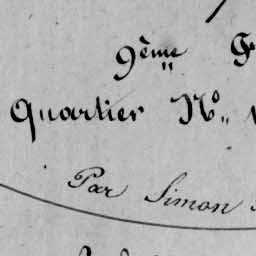 9ème
Quartier No
Par Simon